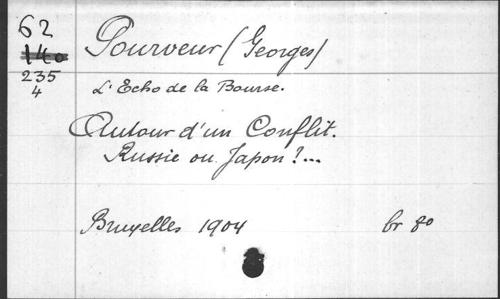 62
140
235
4
Pourveur (Georges)
L'Echo de la Bourse.
Autour d'un Conflit.
Russie ou Japon ?...
Bruxelles 1904 br 8o